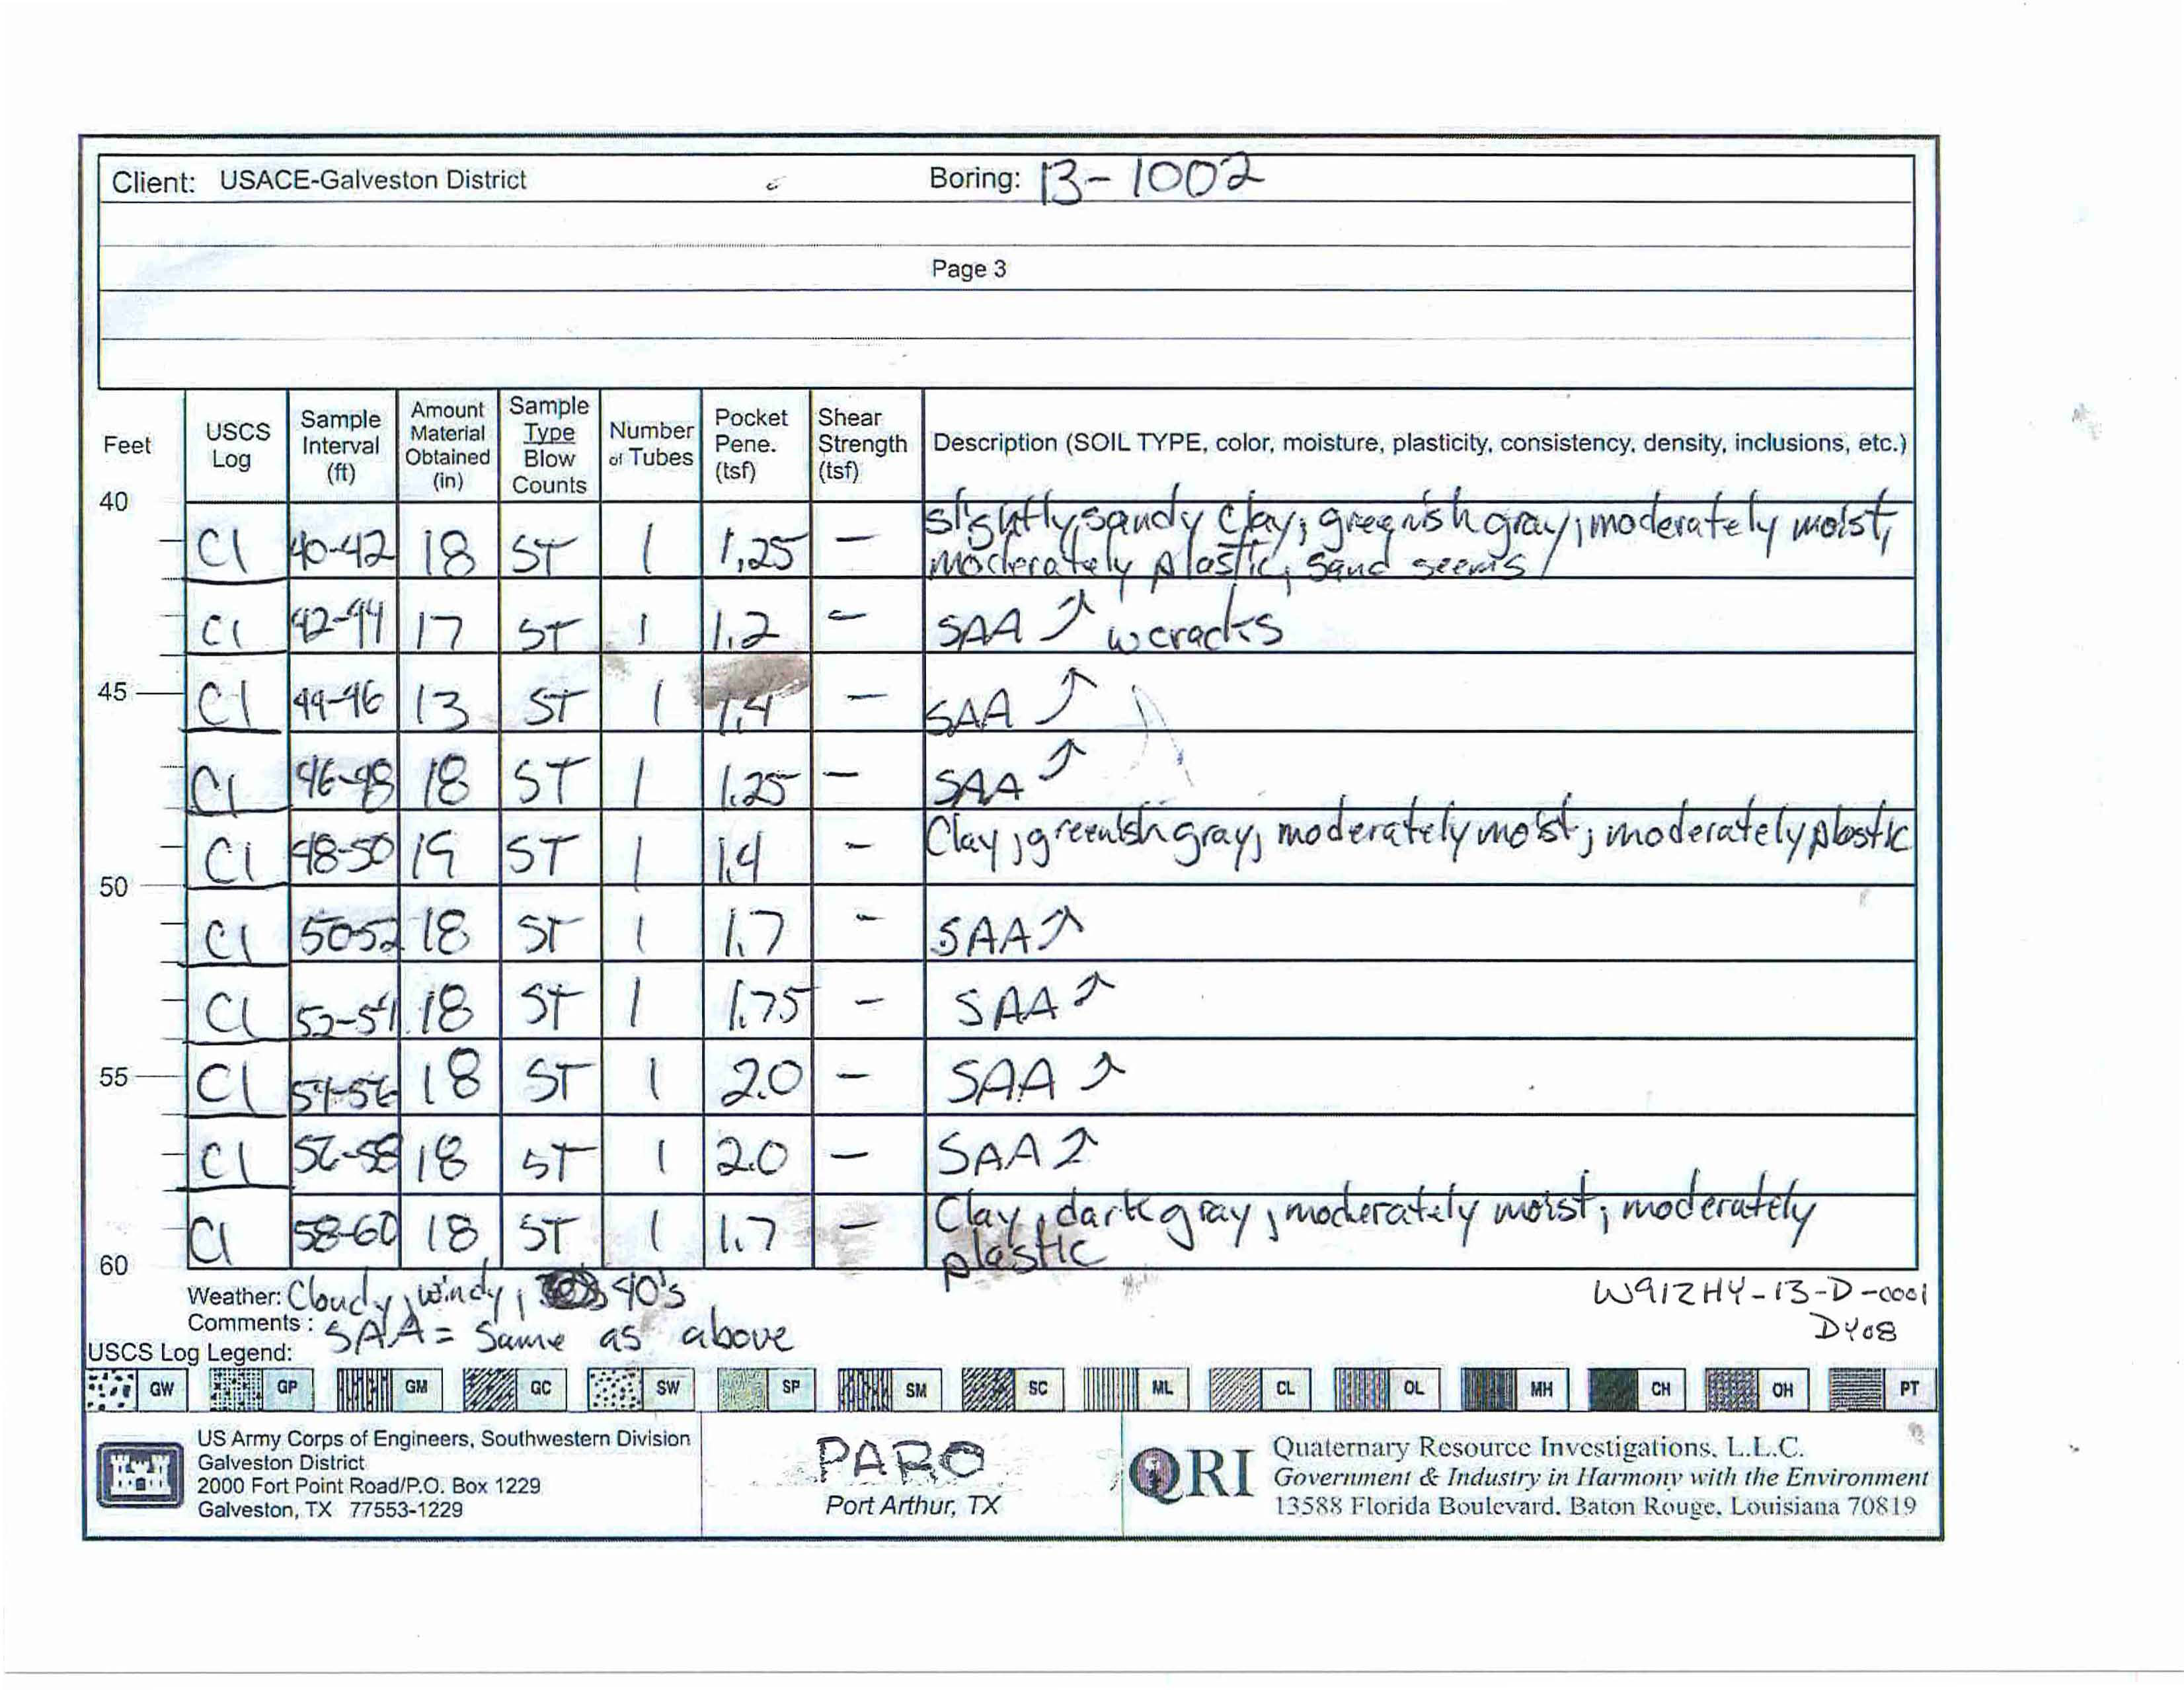 Client: USACE-Galveston District Boring: 13-1002
Page 3
Feet USCS Log Sample Interval (ft) Amount Material Obtained (in) Sample Type Blow Counts Number of Tubes Pocket Pene. (tsf) Shear Strength (tsf) Description (SOIL TYPE, color, moisture, plasticity, consistency, density, inclusions, etc.)
40
Cl 40-42 18 ST 1 1.25 — slightly sandy clay; greenish gray; moderately moist,
moderately plastic, sand seems
Cl 42-44 17 ST 1 1.2 — SAA ↗ w cracks
45 Cl 44-46 13 ST 1 1.4 — SAA ↗
Cl 46-48 18 ST 1 1.25 — SAA ↗
Cl 48-50 19 ST 1 1.4 — Clay; greenish gray; moderately moist; moderately plastic
50
Cl 50-52 18 ST 1 1.7 - SAA ↗
Cl 52-54 18 ST 1 1.75 — SAA ↗
55 Cl 54-56 18 ST 1 2.0 — SAA ↗
Cl 56-58 18 ST 1 2.0 — SAA ↗
Cl 58-60 18 ST 1 1.7 — Clay, dark gray, moderately moist; moderately
plastic
60
Weather: Cloudy, windy, 40's W912HY-13-D-0001
Comments: SAA = Same as above DY08
USCS Log Legend:
GW GP GM GC SW SP SM SC ML CL OL MH CH OH PT
US Army Corps of Engineers, Southwestern Division
Galveston District
2000 Fort Point Road/P.O. Box 1229
Galveston, TX 77553-1229
PARO
Port Arthur, TX
QRI
Quaternary Resource Investigations, L.L.C.
Government & Industry in Harmony with the Environment
13588 Florida Boulevard, Baton Rouge, Louisiana 70819